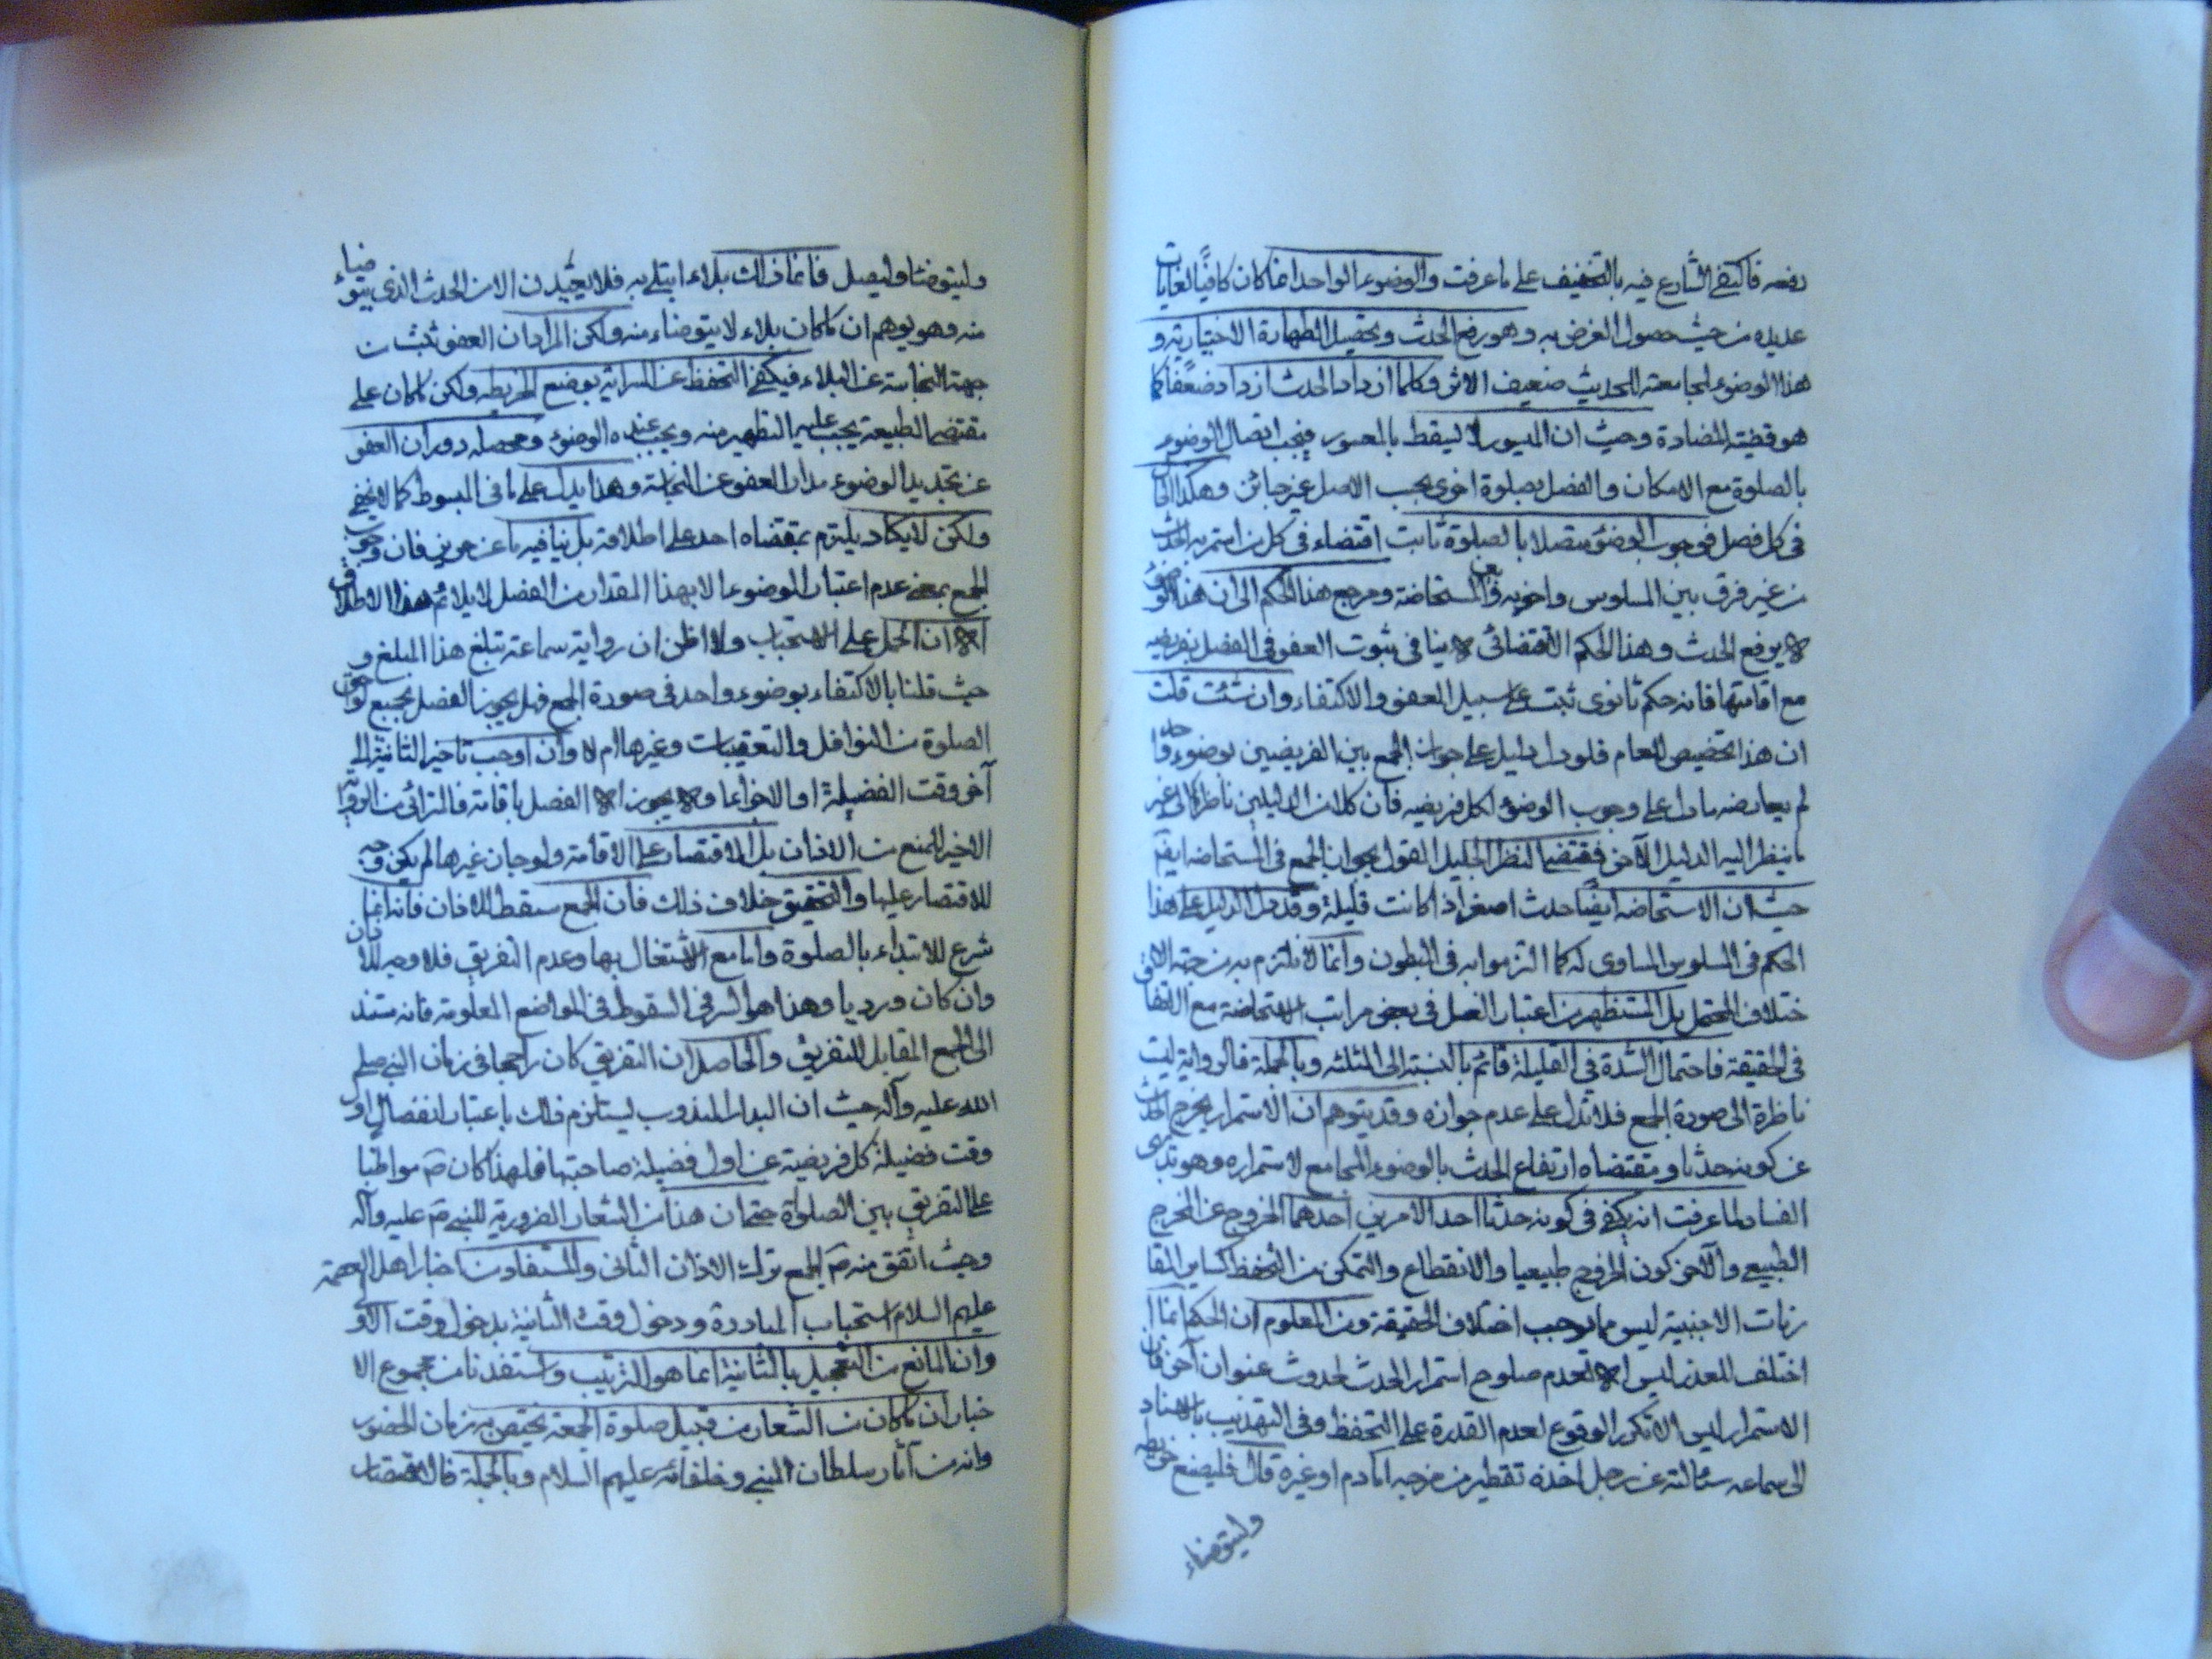 رفعه فاكتفى الشارع فيه بالتخفيف على ما عرفت والوضوء الواحد انما كان كافيا لغايات
عديده من حيث حصول الغرض به وهو رفع الحدث وتحصيل الطهارة الاختيارية و
هذا الوضوء لمجامعته للحدث ضعيف الاثر وكلما ازداد الحدث ازداد ضعفا كما
هو قضية المضادة وحيث ان الميسور لا يسقط بالمعسور فيجب اتصال الوضوء
بالصلوة مع الامكان والفصل بصلوة اخرى بحسب الاصل غير جائز وهكذا الحال
فى كل فصل فوجوب الوضوء متصلا بالصلوة ثابت اقتضاء فى كل من استمر به الحدث
من غير فرق بين المسلوس واخويه والمستحاضة ومرجع هذا الحكم الى ان هذا الوضوء
لا يرفع الحدث وهذا الحكم الاقتضائى لا ينافى ثبوت العفو فى الفصل بفريضه
مع اقامتها فانه حكم ثانوى ثبت على سبيل العفو والاكتفاء وان شئت قلت
ان هذا تخصيص للعام فلو دل دليل على جواز الجمع بين الفريضين بوضوء واحد
لم يعارضه ما دل على وجوب الوضوء لكل فريضيه فان كلا من الدليلين ناظر الى غير
ما ينظر اليه الدليل الآخر فمقتضى النظر الجليل القول بجواز الجمع فى المستحاضه ايضا
حيث ان الاستحاضه ايضا حدث اصغر اذا كانت قليلة وقد دل الدليل على هذا
الحكم فى المسلوس المساوى له كما التزموا به فى البطون وانما لا نلتزم به من جهة الا
ختلاف المحتمل بل المستظهر من اعتبار الغسل فى بعض مراتب الاستحاضة مع الاتفاق
فى الحقيقة فاحتمال الشدة فى القليلة قائم بالنسبة الى الثلثه وبالجملة فالرواية ليست
ناظرة الى صورة الجمع فلا تدل على عدم جوازه وقد يتوهم ان الاستمرار يخرج الحدث
عن كونه حدثا ومقتضاه ارتفاع الحدث بالوضوء المجامع لاستمراره وهو بديهى
الفساد لما عرفت انه يكفى فى كونه حدثا احد الامرين احدهما الخروج عن المخرج
الطبيعى والآخر كون الخروج طبيعيا والانقطاع والتمكن من التحفظ كساير المقا
رنات الاجنبية ليس مما يوجب اختلاف الحقيقة ومن المعلوم ان الحكم انما
اختلف للعذر ليس الا لعدم صلوح استمرار الحدث لحدوث عنوان آخر فان
الاستمرار ليس الا تكرر الوقوع لعدم القدرة على التحفظ وفى التهذيب بالاسناد
الى سماعه سئالته عن رجل اخذه تقطير من فرجه اما دم او غيره قال فليصنع خريطه
وليتوضاء
وليتوضا وليصل فانما ذلك بلاء ابتلى به فلا يعيدن الا من الحدث الذى يتوضاء
منه وهو يوهم ان ما كان بلاء لا يتوضاء منه ولكن المراد ان العفو ثبت من
جهة النجاسة عن البلاء فيكفى التحفظ عن السراية بوضع الخريطه ولكن ما كان على
مقتضى الطبيعة يجب عليه التطهير منه ويجب عنده الوضوء ومحصله دوران العفو
عن تجديد الوضوء مدار العفو عن النجاسة وهذا يدل على ما فى المبسوط كما لا يخفى
ولكن لا يكاد يلتزم بمقتضاه احد على اطلاقه بل ينافيه ما عن حريز فان وجوب
الجمع بمعنى عدم اعتبار الوضوء الا بهذا المقدار من الفصل لا يلائم هذا الاطلاق
الا ان الحمل على الاستحباب ولا اظن ان رواية سماعة تبلغ هذا المبلغ و
حيث قلنا بالاكتفاء بوضوء واحد فى صورة الجمع فهل يجوز الفصل بجميع لواحق
الصلوة من النوافل والتعقيبات وغيرها ام لا وان اوجب تاخير الثانية الى
آخر وقت الفضيلة او الاجزاء او لا يجوز الا الفصل باقامة فالترائى من الرواية
الاخير للمنع من الاذان بل الاقتصار على الاقامة ولو جاز غيرها لم يكن وجه
للاقتصار عليها والتحقيق خلاف ذلك فان الجمع مسقط للاذان فانه انما
شرع للابتداء بالصلوة واما مع الاشتغال بها وعدم التفريق فلا وجه للاذان
وان كان ورد يا وهذا هو السر فى السقوط فى المواضع المعلومة فانه مستند
الى الجمع المقابل للتفريق والحاصل ان التفريق كان راجحا فى زمان النبى صلى
الله عليه وآله حيث ان البدار المندوب يستلزم ذلك باعتبار انفصال اول
وقت فضيلة كل فريضية عن اول فضيلة صاحبتها فلهذا كان ص مواظبا
على التفريق بين الصلوة حتى ان هذا من الشعار الضرورية للنبى ص عليه وآله
وحيث اتفق منه ص الجمع ترك الاذان الثانى والمستفاد من اخبار اهل العصمة
عليهم السلام استحباب المبادرة ودخول وقت الثانية بدخول وقت الاولى
وان المانع من التعجيل بالثانية انما هو الترتيب واستفدنا من مجموع الا
خبار ان ما كان من الشعار من قبيل صلوة الجمعة يختص به زمان الحضور
وانه من آثار سلطان النبى وخلفائه عليهم السلام وبالجملة فالاقتصار